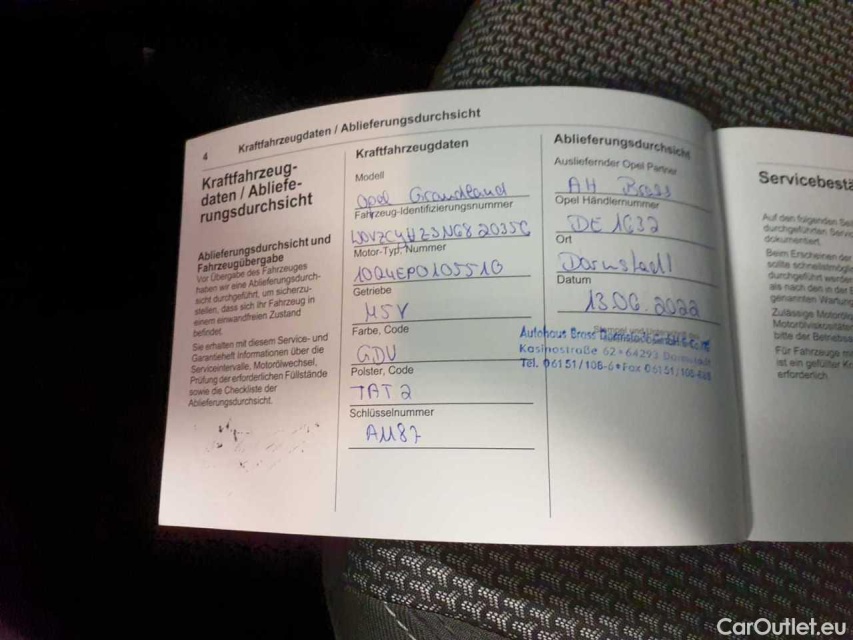 4 Kraftfahrzeugdaten / Ablieferungsdurchsicht
Kraftfahrzeug-
daten / Abliefe-
rungsdurchsicht
Ablieferungsdurchsicht und
Fahrzeugübergabe
Vor Übergabe des Fahrzeuges
haben wir eine Ablieferungsdurch-
sicht durchgeführt, um sicherzu-
stellen, dass sich Ihr Fahrzeug in
einem einwandfreien Zustand
befindet.
Sie erhalten mit diesem Service- und
Garantieheft Informationen über die
Serviceintervalle, Motorölwechsel,
Prüfung der erforderlichen Füllstände
sowie die Checkliste der
Ablieferungsdurchsicht.
Kraftfahrzeugdaten
Modell
Opel Grandland
Fahrzeug-Identifizierungsnummer
W0VZCYHZ3NG82035C
Motor-Typ, Nummer
10Q4EP0105510
Getriebe
M5V
Farbe, Code
GDU
Polster, Code
TAT2
Schlüsselnummer
AM87
Ablieferungsdurchsicht
Ausliefernder Opel Partner
AH Brass
Opel Händlernummer
DE 1632
Ort
Darmstadt
Datum
13.06.2022
Autohaus Brass Darmstadt GmbH & Co.
Kasinostraße 62 • 64293 Darmstadt
Tel. 06151/106-0 • Fax 06151/106-
Servicebestä
Auf den folgenden Sei
durchgeführten Servic
dokumentiert.
Beim Erscheinen der
sollte schnellstmöglic
durchgeführt werden
als nach den in der B
genannten Wartung
Zulässige Motoröl
Motorölviskosität
bitte der Betriebs
Für Fahrzeuge mi
ist ein geführter K
erforderlich.
CarOutlet.eu